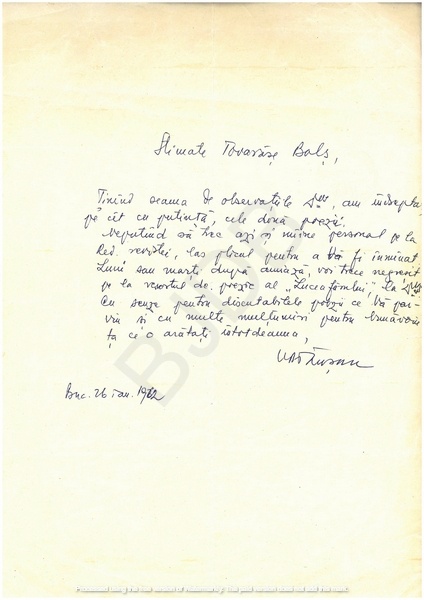 Stimate Tovarășe Balș,
Ținînd seama de observațiile Dvs, am îndreptat,
pe cît cu putință, cele două poezii.
Neputînd să trec azi și mîine personal pe la
Red. revistei, las plicul pentru a Vă fi înmînat.
Luni sau marți după amiază, voi trece negreșit
pe la resortul de poezie al "Luceafărului" la Dvs.
Cu scuze pentru discutabilele poezii ce Vă par-
vin și cu multe mulțumiri pentru bunăvoin-
ța ce o arătați întotdeauna,
Buc. 26 ian. 1972